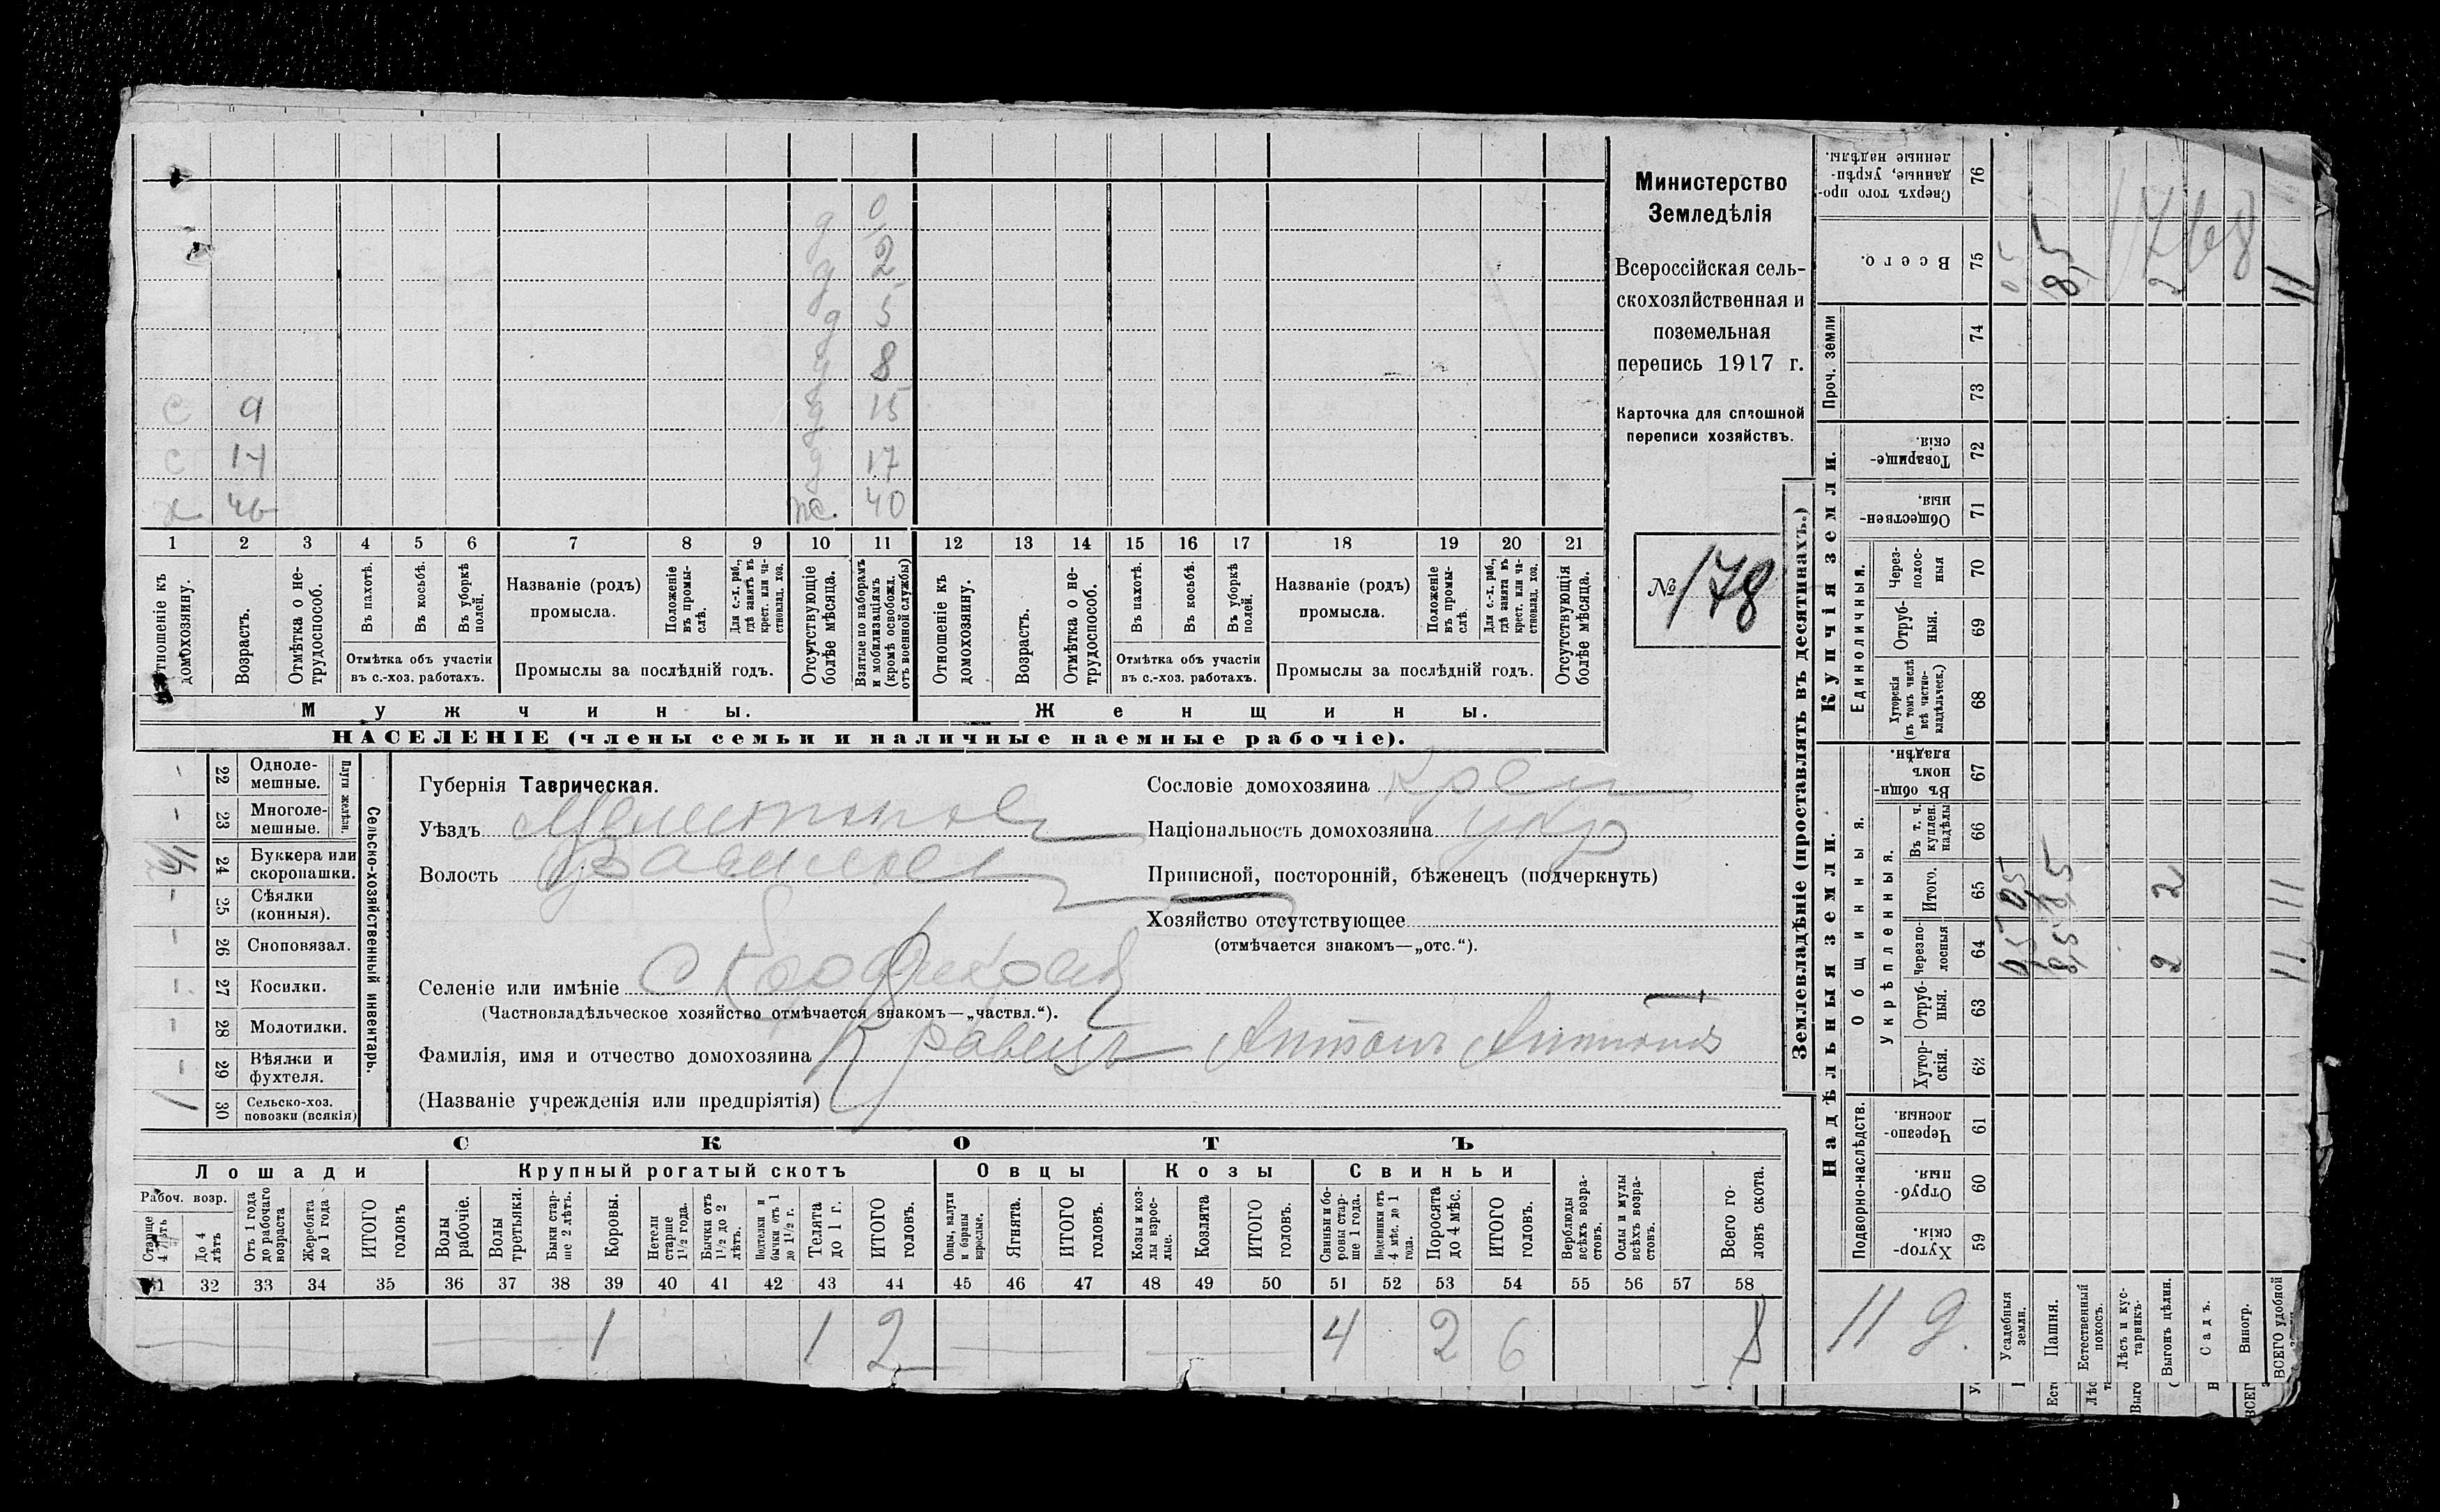 Министерство
Земледѣлія
Всероссійская сель-
скохозяйственная и
поземельная
перепись 1917 г.
Карточка для сплошной
переписи хозяйствъ.
№ 178
д 0
д 2
д 5
д 8
с 9 д 15
с 14 д 17
х 46 ж. 40
1 2 3 4 5 6 7 8 9 10 11 12 13 14 15 16 17 18 19 20 21
Отношеніе къ домохозяину.
Возрастъ.
Отмѣтка о не-трудоспособ.
Въ пахотѣ.
Въ косьбѣ.
Въ уборкѣ полей.
Отмѣтка объ участіи
въ с.-хоз. работахъ.
Названіе (родъ)
промысла.
Положеніе въ промы-слѣ.
Для с.-х. раб., гдѣ занятъ въ крест. или ча-стновлад. хоз.
Промыслы за послѣдній годъ.
Отсутствующіе болѣе мѣсяца.
Взятые по наборамъ и мобилизаціямъ (кромѣ освобожд. отъ военной службы)
Отношеніе къ домохозяину.
Возрастъ.
Отмѣтка о не-трудоспособ.
Въ пахотѣ.
Въ косьбѣ.
Въ уборкѣ полей.
Отмѣтка объ участіи
въ с.-хоз. работахъ.
Названіе (родъ)
промысла.
Положеніе въ промы-слѣ.
Для с.-х. раб., гдѣ занятъ въ крест. или ча-стновлад. хоз.
Промыслы за послѣдній годъ.
Отсутствующія болѣе мѣсяца.
Мужчины. Женщины.
НАСЕЛЕНІЕ (члены семьи и наличные наемные рабочіе).
Сельско-хозяйственный инвентарь.
Плуги желѣзн.
- 22 Одноле-мешные.
- 23 Многоле-мешные.
24 Буккера или скоропашки.
- 25 Сѣялки (конныя).
- 26 Сноповязал.
- 27 Косилки.
- 28 Молотилки.
- 29 Вѣялки и фухтеля.
1 30 Сельско-хоз. повозки (всякія)
Губернія Таврическая.
Уѣздъ Мелитопол
Волость
Селеніе или имѣніе с
(Частновладѣльческое хозяйство отмѣчается знакомъ—„частвл.“).
Фамилія, имя и отчество домохозяина Кравецъ Антонъ Антонов
(Названіе учрежденія или предпріятія)
Сословіе домохозяина крест
Національность домохозяина укр
Приписной, посторонній, бѣженецъ (подчеркнуть)
Хозяйство отсутствующее
(отмѣчается знакомъ—„отс.“).
СКОТЪ
Лошади Крупный рогатый скотъ Овцы Козы Свиньи
Рабоч. возр.
Старше 4 лѣтъ
До 4 лѣтъ
Отъ 1 года до рабочаго возраста
Жеребята до 1 года
ИТОГО головъ
Волы рабочіе.
Волы третьяки.
Быки стар-ше 2 лѣтъ.
Коровы.
Нетели старше 1½ года.
Бычки отъ 1½ до 2 лѣтъ.
Подтелки и бычки отъ 1 до 1½ г.
Телята до 1 г.
ИТОГО головъ.
Овцы, валухи и бараны взрослые.
Ягнята.
ИТОГО головъ.
Козы и коз-лы взрос-лые.
Козлята
ИТОГО головъ.
Свиньи и бо-ровы стар-ше 1 года.
Подсвинки отъ 4 мѣс. до 1 года.
Поросята до 4 мѣс.
ИТОГО головъ.
Верблюды всѣхъ возра-стовъ.
Ослы и мулы всѣхъ возра-стовъ.
Всего го-ловъ скота.
31 32 33 34 35 36 37 38 39 40 41 42 43 44 45 46 47 48 49 50 51 52 53 54 55 56 57 58
1 1 2 4 2 6 8
Землевладѣніе (проставлять въ десятинахъ.)
Купчія земли.
Надѣльныя земли.
Проч. земли
Единоличныя.
Общинныя.
Укрѣпленныя.
Подворно-наслѣдств.
Сверхъ того про-данные, укрѣп-ленные надѣлы. 76
Всего. 75
74
73
Товарище-скія. 72
Обществен-ныя. 71
Через-полос-ныя 70
Отруб-ныя. 69
Хуторскія (въ томъ числѣ всѣ частно-владѣльческ.) 68
Въ общин-номъ владѣн. 67
Въ т. ч. куплен. надѣлы 66
Итого. 65
Черезпо-лосныя 64
Отруб-ныя. 63
Хутор-скія. 62
Черезпо-лосныя. 61
Отруб-ныя. 60
Хутор-скія. 59
Усадебныя земли. 0,5 0,5 0,5
Пашня. 8,5 8,5 8,5
Естественный покосъ.
Лѣсъ и кус-тарникъ.
Выгонъ цѣлин. 2 2 2
Садъ.
Виногр.
ВСЕГО удобной 11 11 11
1768
11 д.